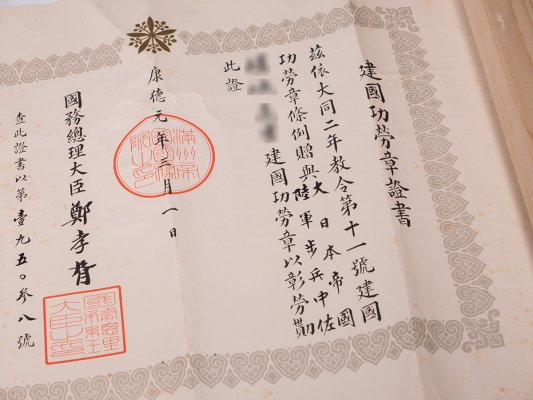 建國功勞章證書
茲依大同二年教令第十一號建國
功勞章條例贈與大日本帝國
陸軍步兵中佐
建國功勞章以彰勞勩
此證
康德元年三月一日
國務總理大臣 鄭孝胥
查此證書以第壹九五〇參八號